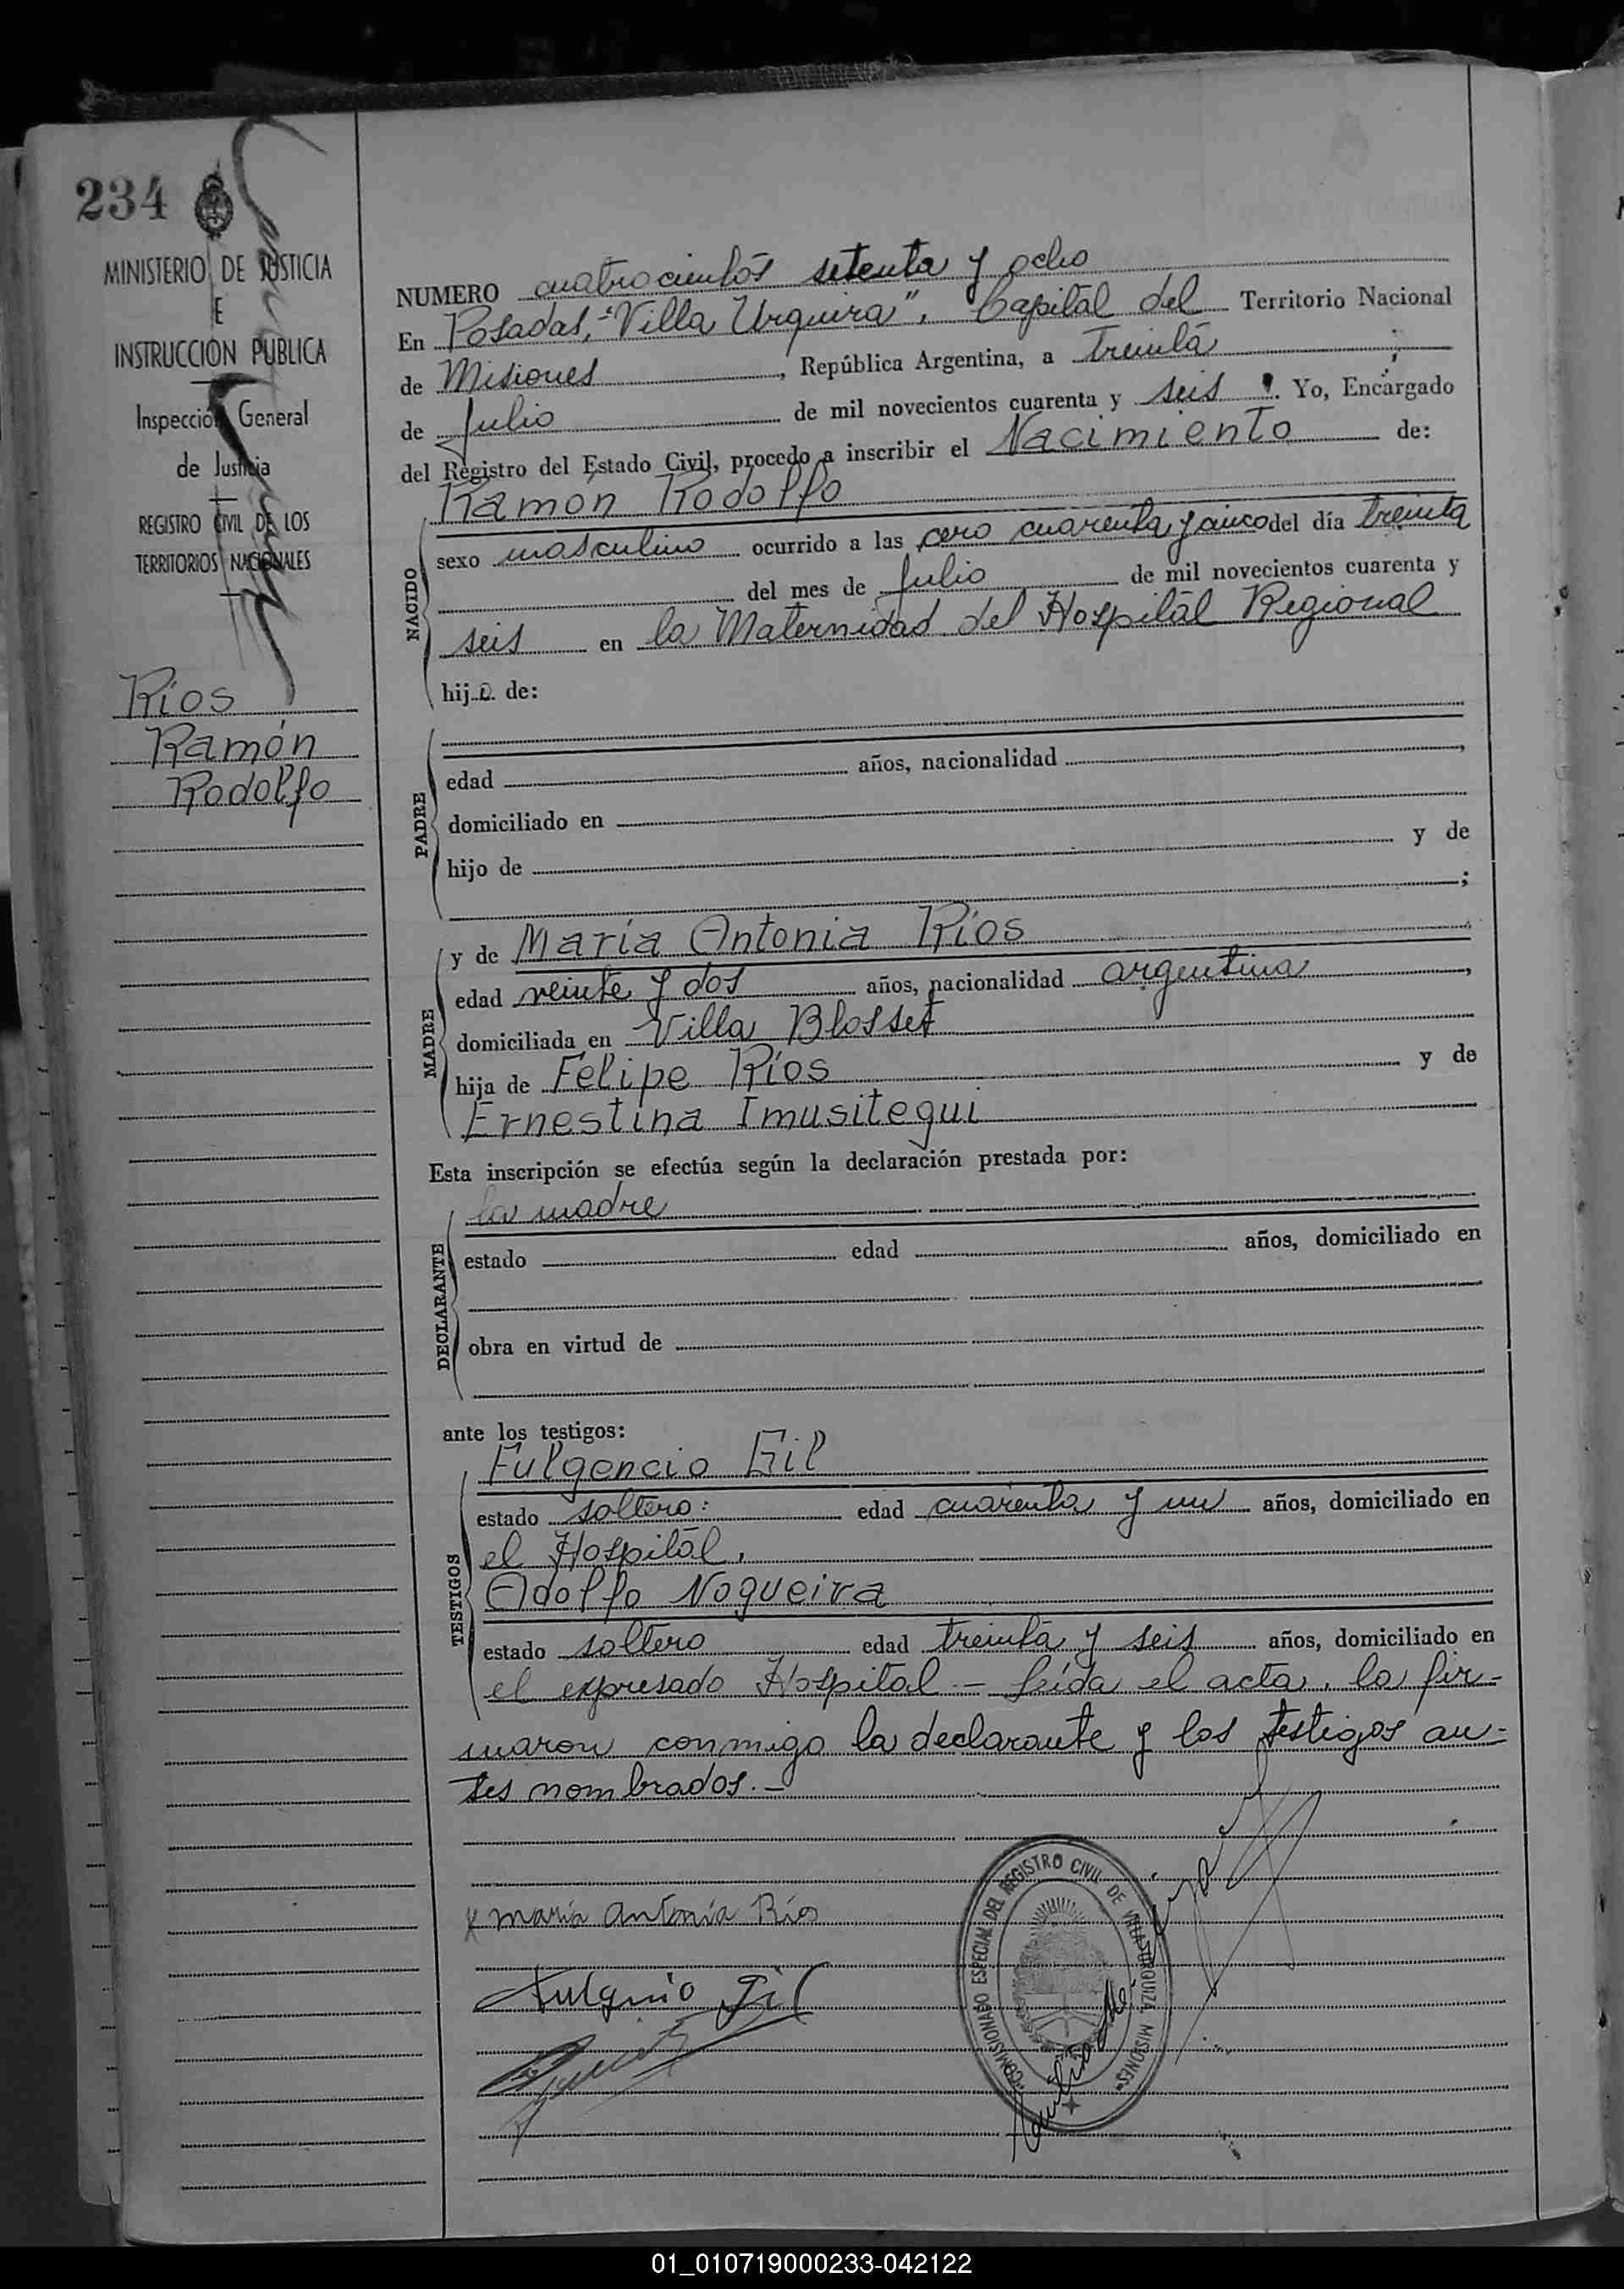 234
MINISTERIO DE JUSTICIA
E
INSTRUCCIÓN PUBLICA
Inspección General
de Justicia
REGISTRO CIVIL DE LOS
TERRITORIOS NACIONALES
Ríos
Ramón
Rodolfo
NUMERO cuatrocientos setenta y ocho
En Posadas, "Villa Urquiza", Capital del Territorio Nacional
de Misiones, República Argentina, a Treinta
de Julio de mil novecientos cuarenta y seis. Yo, Encargado
del Registro del Estado Civil, procedo a inscribir el Nacimiento de:
NACIDO
Ramón Rodolfo
sexo masculino ocurrido a las cero cuarenta y cinco del día treinta
del mes de Julio de mil novecientos cuarenta y
seis en la Maternidad del Hospital Regional
hijo de:
PADRE
edad años, nacionalidad ,
domiciliado en
hijo de y de
;
MADRE
y de María Antonia Ríos
edad veinte y dos años, nacionalidad argentina,
domiciliada en Villa Blosset
hija de Felipe Ríos y de
Ernestina Imusitegui
Esta inscripción se efectúa según la declaración prestada por:
DECLARANTE
la madre
estado edad años, domiciliado en
obra en virtud de
ante los testigos:
TESTIGOS
Fulgencio Gil
estado soltero: edad cuarenta y un años, domiciliado en
el Hospital,
Adolfo Nogueira
estado soltero edad treinta y seis años, domiciliado en
el expresado Hospital.- Leída el acta, la fir-
maron conmigo la declarante y los testigos an-
tes nombrados.-
x maria antonia Ríos
Fulgencio Gil
COMISIONADO ESPECIAL DEL REGISTRO CIVIL DE VILLA URQUIZA MISIONES
01_010719000233-042122